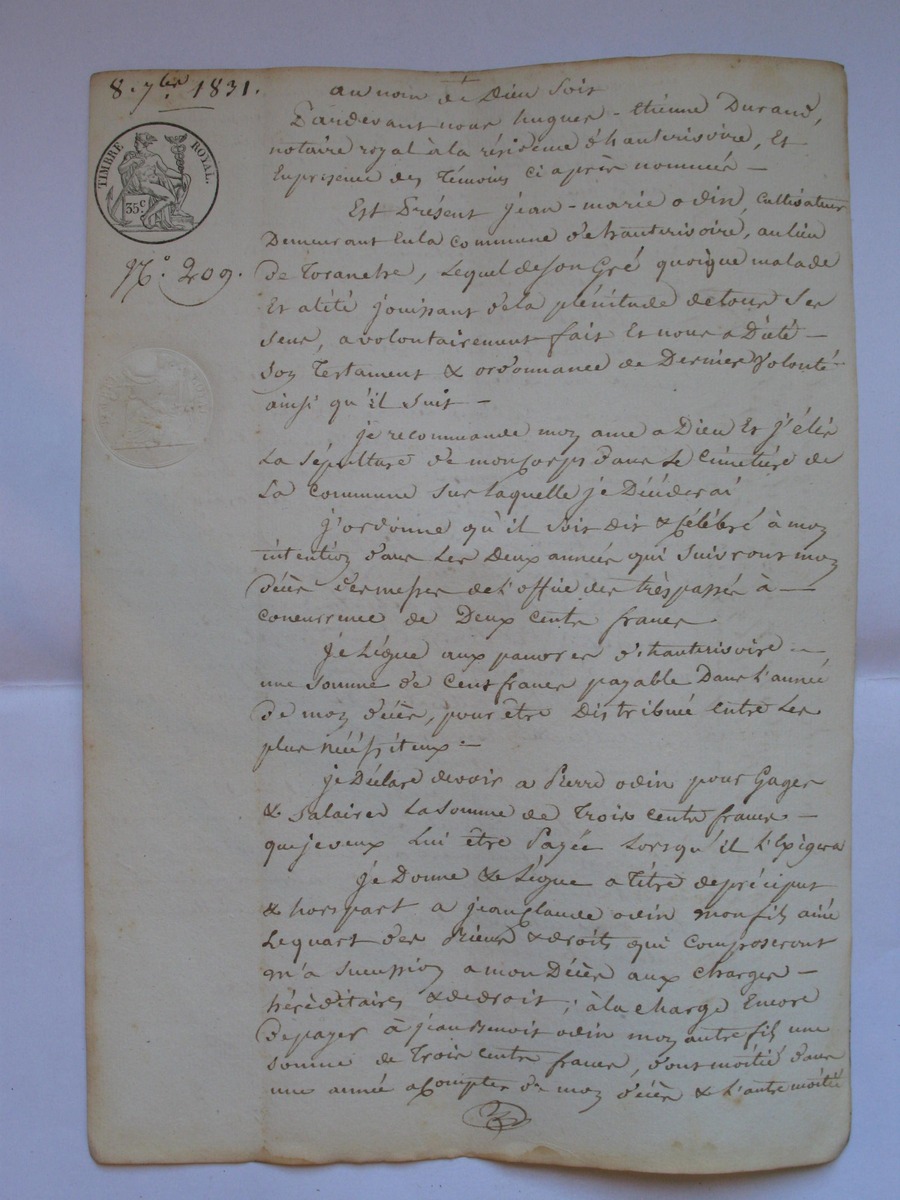 8. 7bre 1831.
au nom de Dieu soit
Pardevant nous hugues-Etienne Durand,
notaire royal à la résidence d'hauterivoire, Et
En presence des Témoins ci après nommés —
TIMBRE ROYAL.
35 c.
Est Présent jean-marie odin, cultivateur
Demeurant En la commune d'hauterivoire, au lieu
N.o 209.
de Tosanche, Lequel de son Gré quoique malade
Et alité jouissant de la plénitude de tous ses
sens, a volontairement fait Et nous a Dicté —
son Testament & ordonnance de Dernier volonté
ainsi qu'il suit —
je recommande mon ame a Dieu Et j'élis
La sépulture de mon corps dans le cimetière de
La commune sur laquelle je Décèderai
j'ordonne qu'il soit dit & célébré à mon
intention dans les Deux années qui suivront mon
décès des messes de l'office des trèspassés à —
concurrence de Deux cents francs
je Lègue aux pauvres d'hauterivoire —
une somme de cent francs payable Dans l'année
de mon décès, pour être Distribué entre les
plus nécéssiteux —
je Déclare devoir a Pierre odin pour Gages
& salaires La somme de Trois cents francs —
que je veux Lui être Payée Lorsqu'il l'Exigera
je Donne & Lègue a titre de préciput
& hors part a jean Claude odin mon fils ainé
Le quart des Biens & droits qui composeront
m'a succession a mon Décès aux charges —
héréditaires & de droit; à la charge Encore
de payer à jean Benoit odin mon autre fils une
somme de Trois cents francs, dont moitié dans
une année a compter de mon décès & l'autre moitié